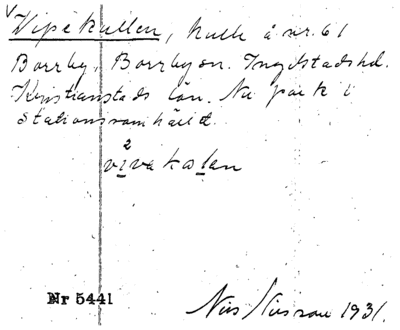 Vipekullen, kulle å nr. 61
Borrby, Borrby sn. Ingelstads hd.
Kristianstads län. Nu park i
stationssamhället.
2
vivakolan
Nr 5441
Nils Nilsson 1931.